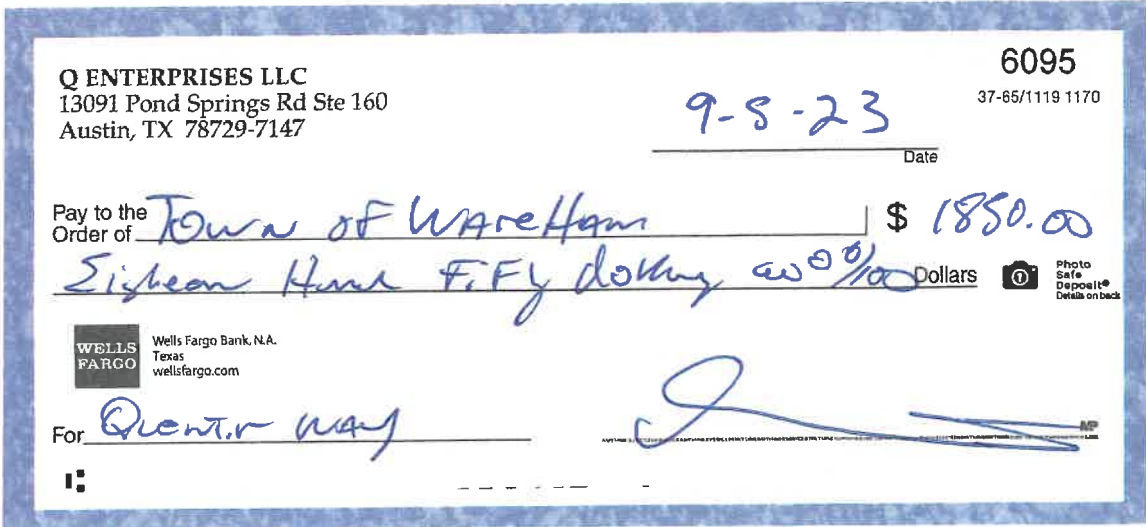 Q ENTERPRISES LLC
13091 Pond Springs Rd Ste 160
Austin, TX 78729-7147
6095
37-65/1119 1170
9-5-23
Date
Pay to the Order of Town of WAreHam $ 1850.00
Eighteen Hund FiFty dollars and 00/100 Dollars
Photo Safe Deposit®
Details on back
WELLS FARGO
Wells Fargo Bank, N.A.
Texas
wellsfargo.com
For Quentin WAy
MP